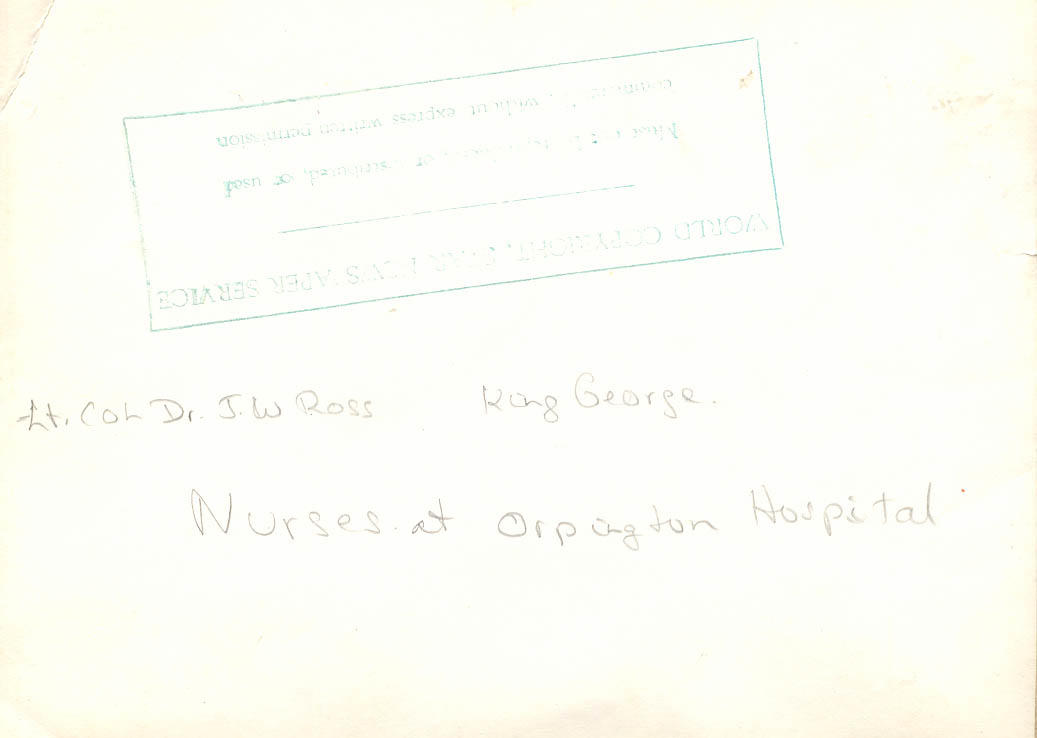 WORLD COPYRIGHT, STAR NEWSPAPER SERVICE
or distributed, or used
without express written permission
Lt. Col Dr. J. W Ross King George.
Nurses at Orpington Hospital